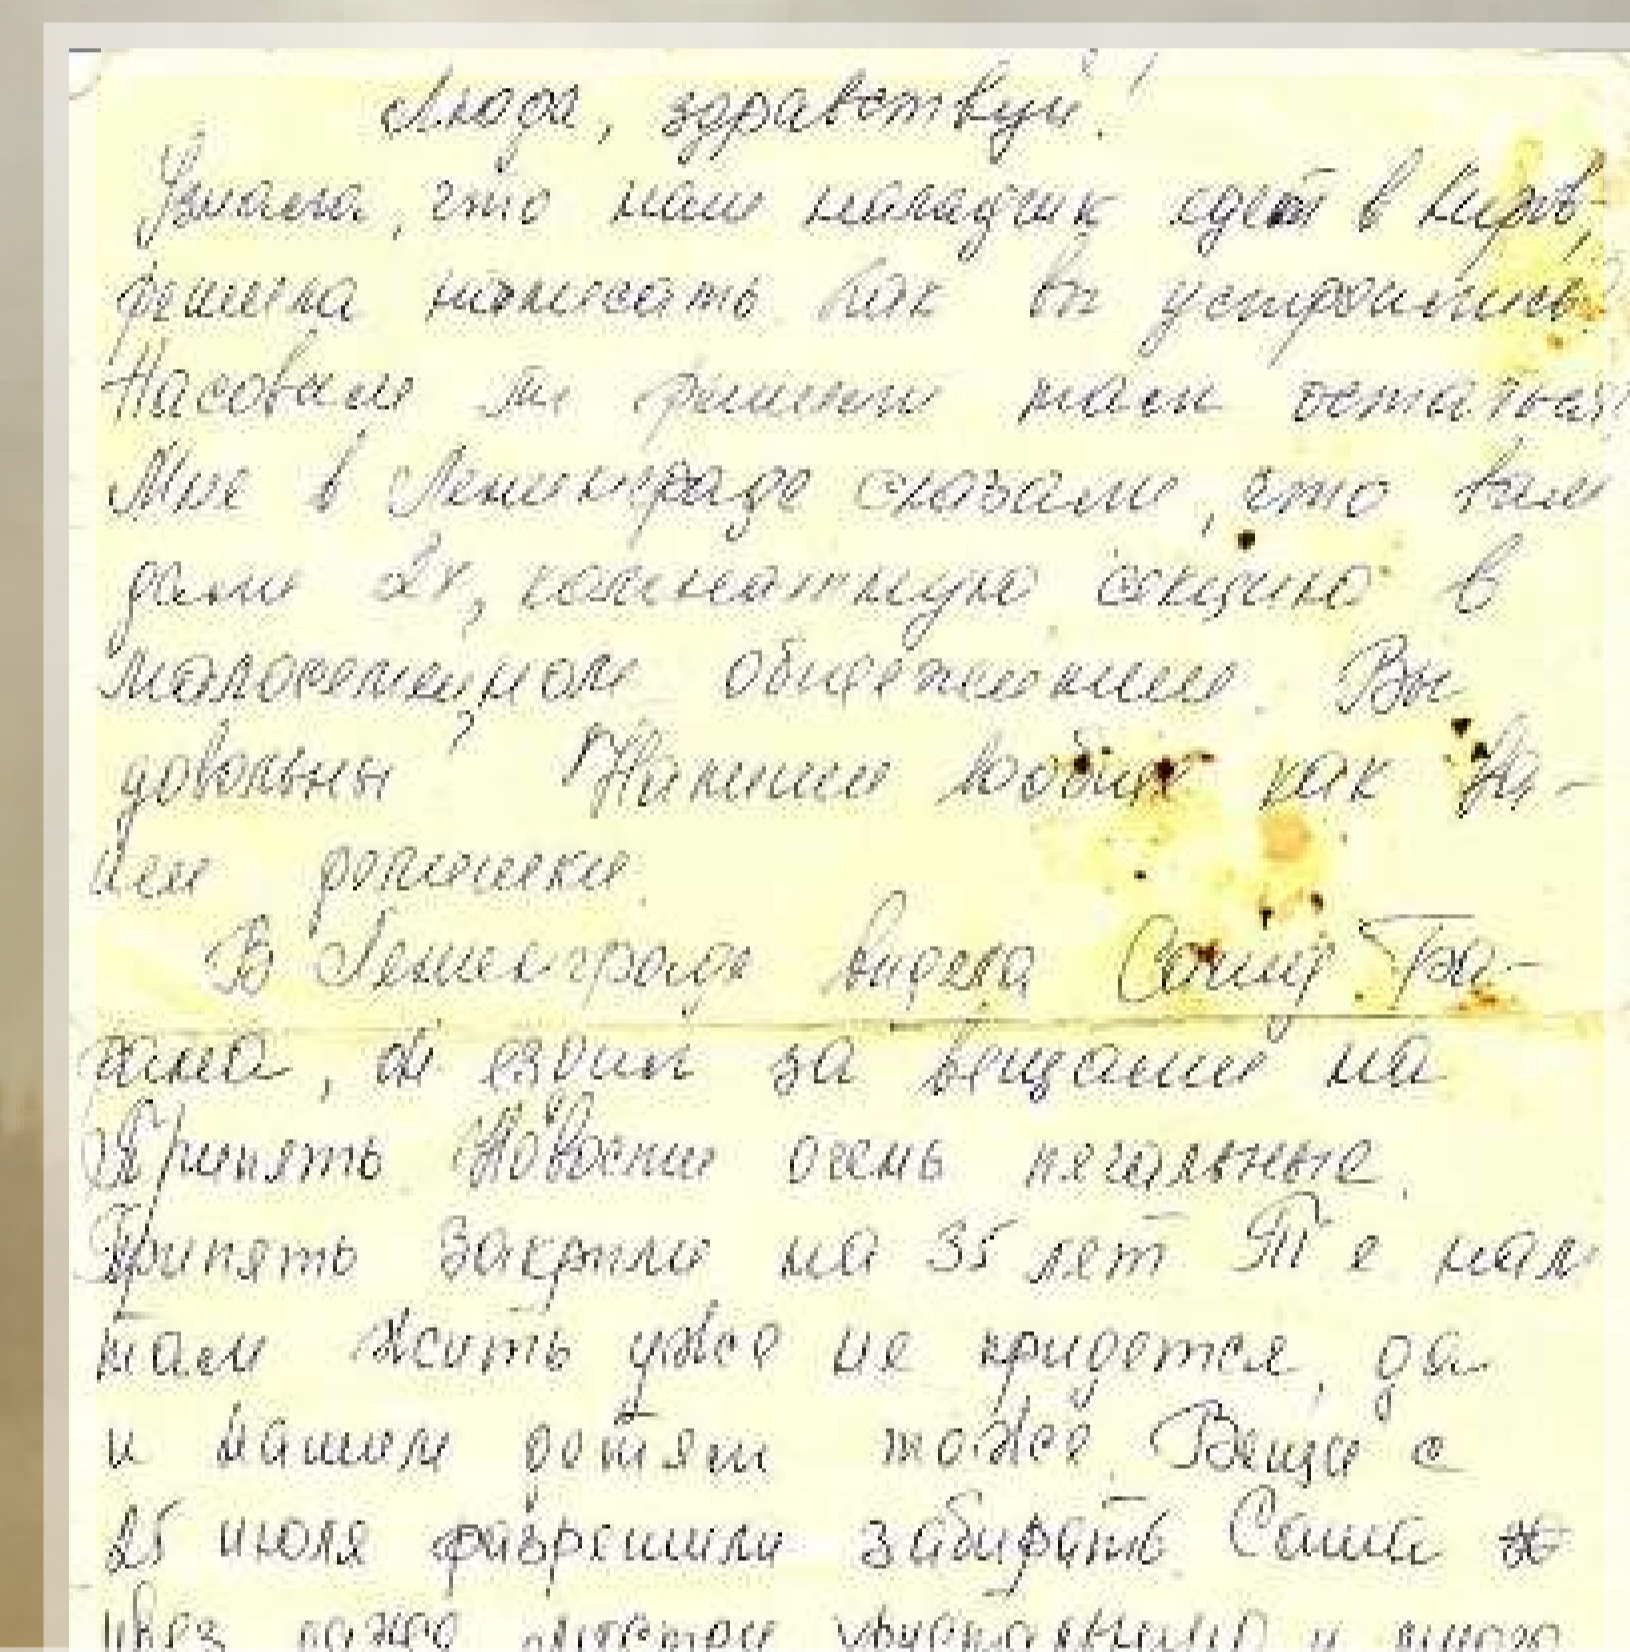 Люда, здравствуй!
Узнала, что наш наладчик едет в Киров,
решила написать. Как вы устроились?
Насовсем ли решили там остаться?
Мне в Ленинграде сказали, что вам
дали 2х, комнатную секцию в
малосемейном общежитии. Вы
довольны? Напиши Любик как ва-
ши ротишки.
В Ленинграде видела Сашу
он ездил за вещами на
Припять. Новости очень печальные.
Припять закрыли на 35 лет. Т. е. нам
там жить уже не придется, да
и нашим детям тоже. Вещи с
25 июля разрешили забирать. Саша
увез даже и много